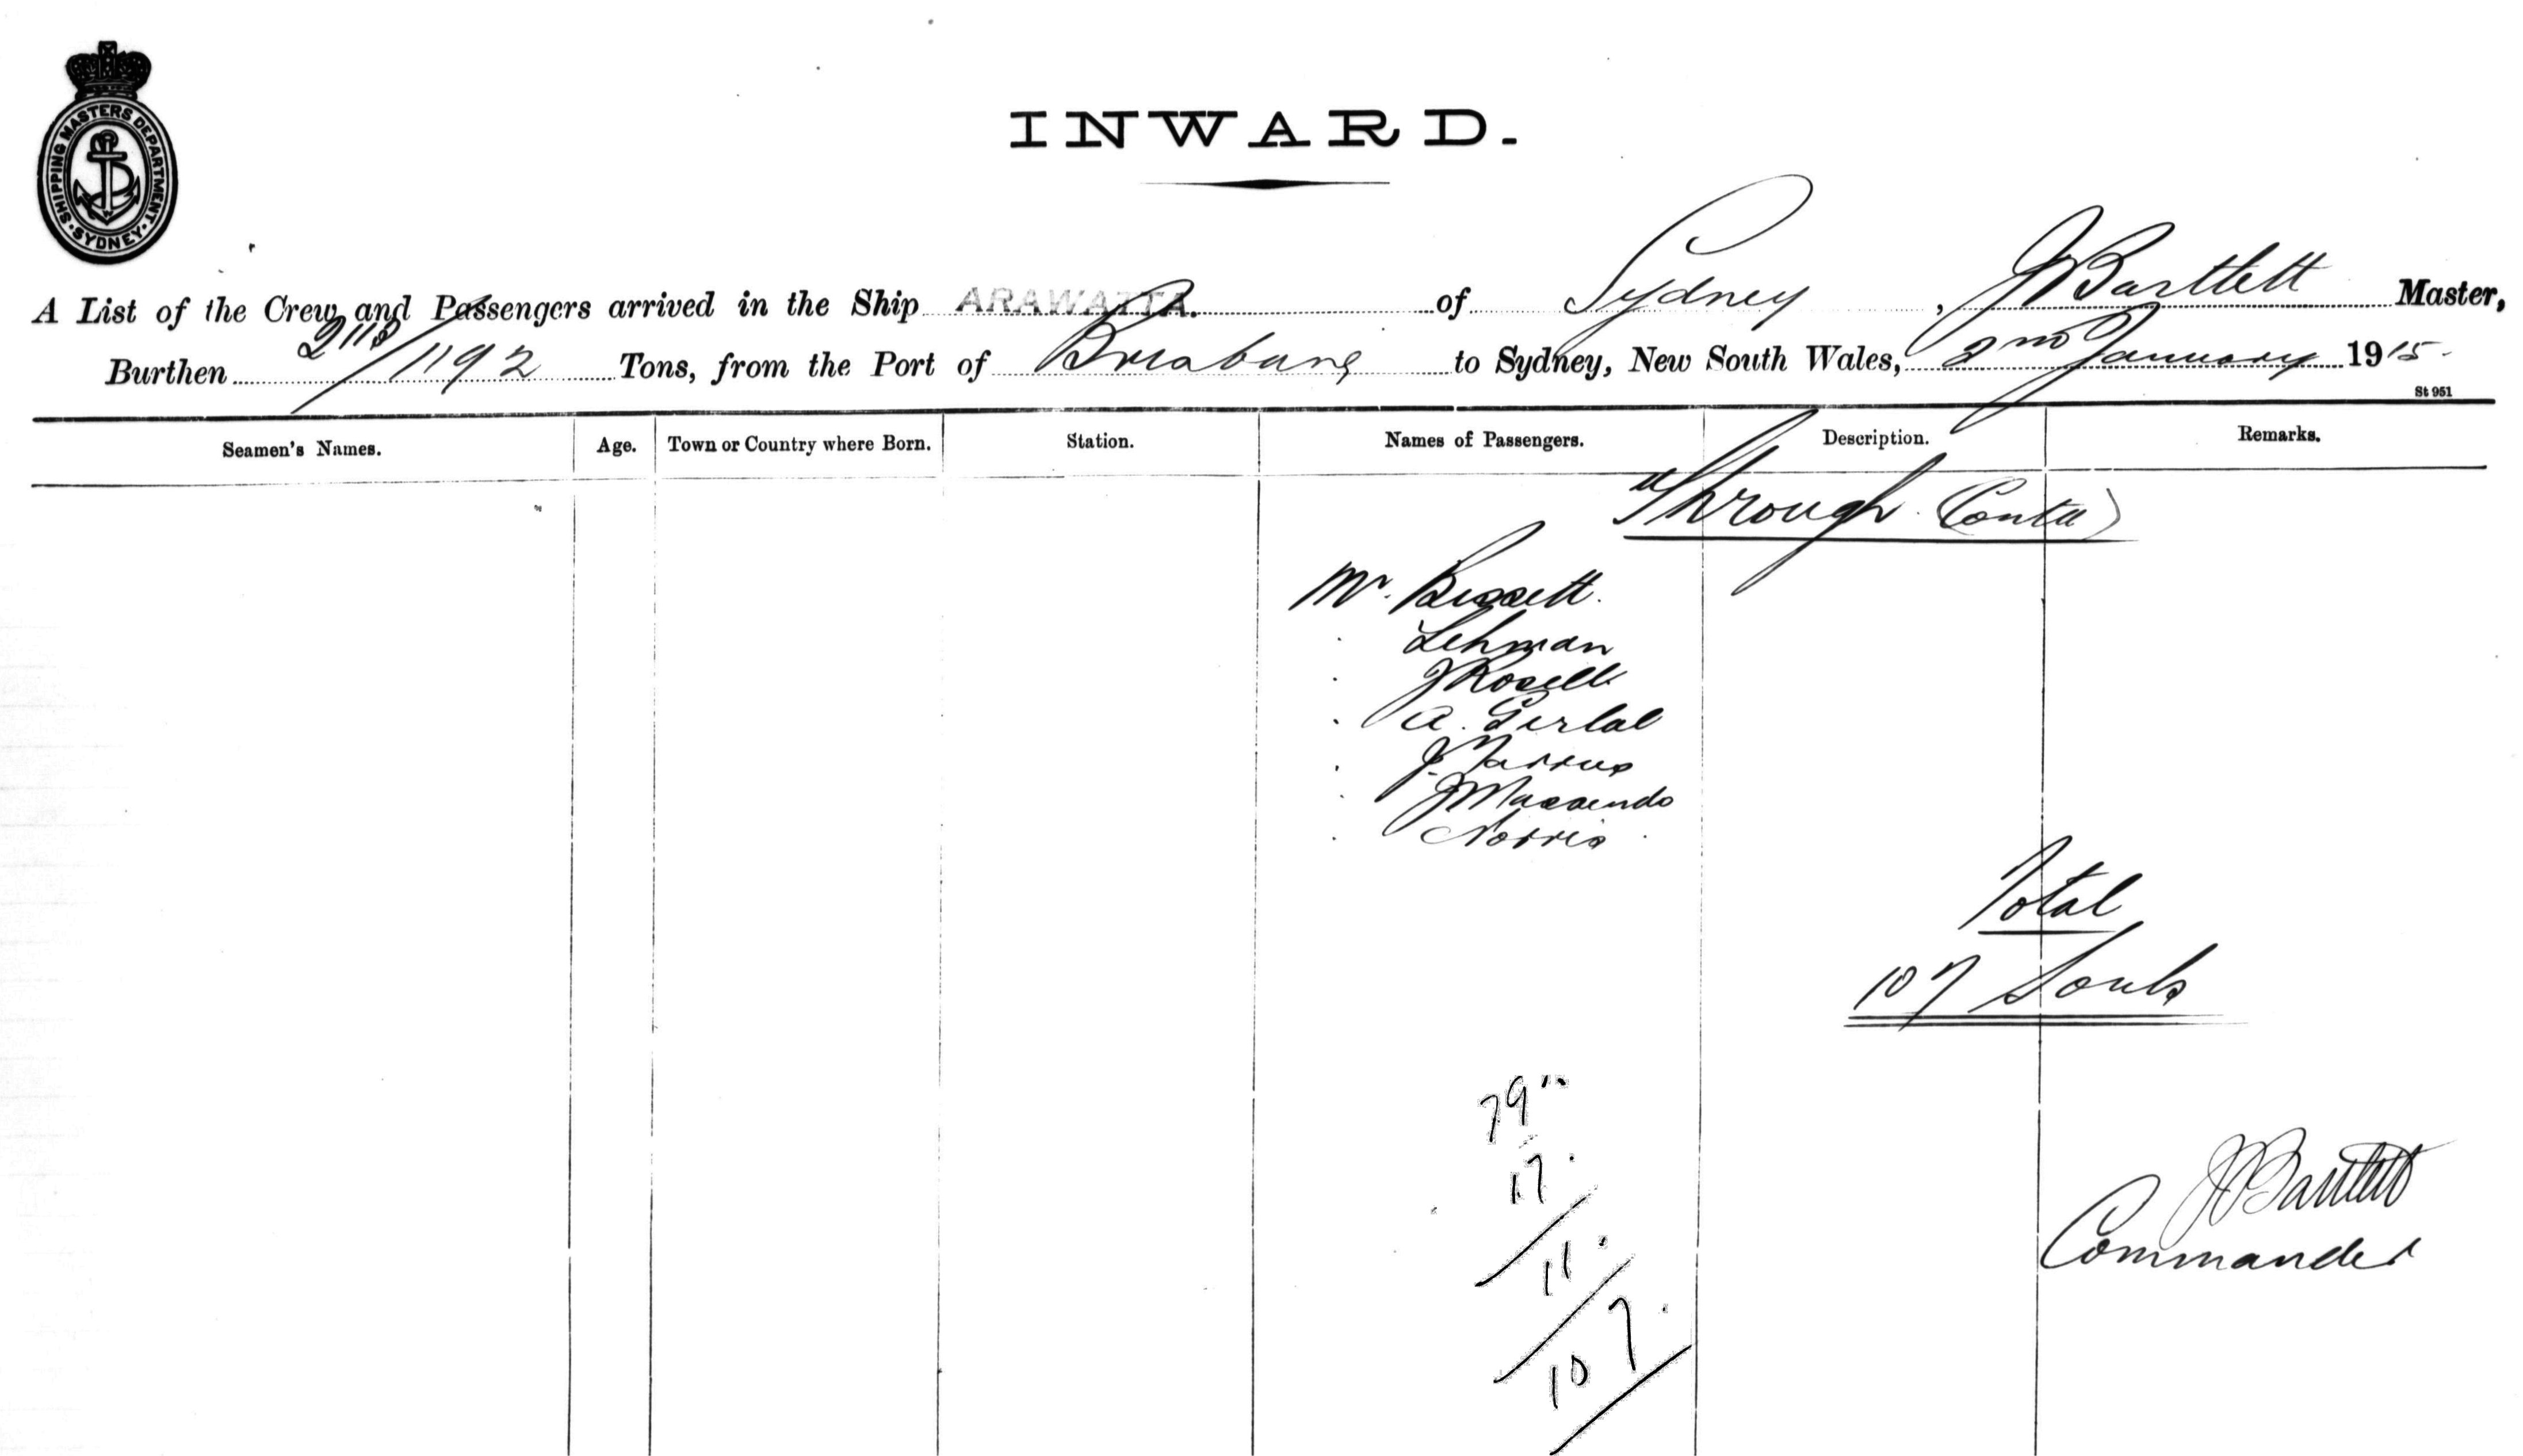 SHIPPING MASTERS DEPARTMENT · SYDNEY ·
INWARD.
A List of the Crew and Passengers arrived in the Ship ARAWATTA. of Sydney, J Bartlett Master,
Burthen 2118/1192 Tons, from the Port of Brisbane to Sydney, New South Wales, 2nd January 1915.
St 951
Seamen's Names. Age. Town or Country where Born. Station. Names of Passengers. Description. Remarks.
"Through (Contd)
Mr. Bissett.
. Lehman
. J
. A.
. J.
. J
. Norris.
Total
107 Souls
79
17.
11.
107.
J Bartlett
Commander